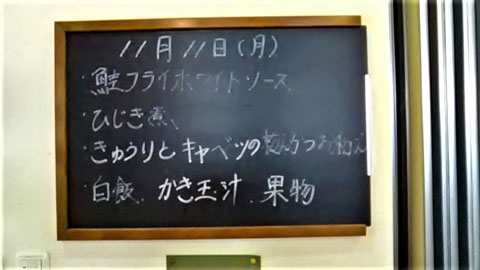 11月11日(月)
・鮭フライホワイトソース
・ひじき煮、
・きゅうりとキャベツの梅かつお和え
・白飯、かき玉汁、果物